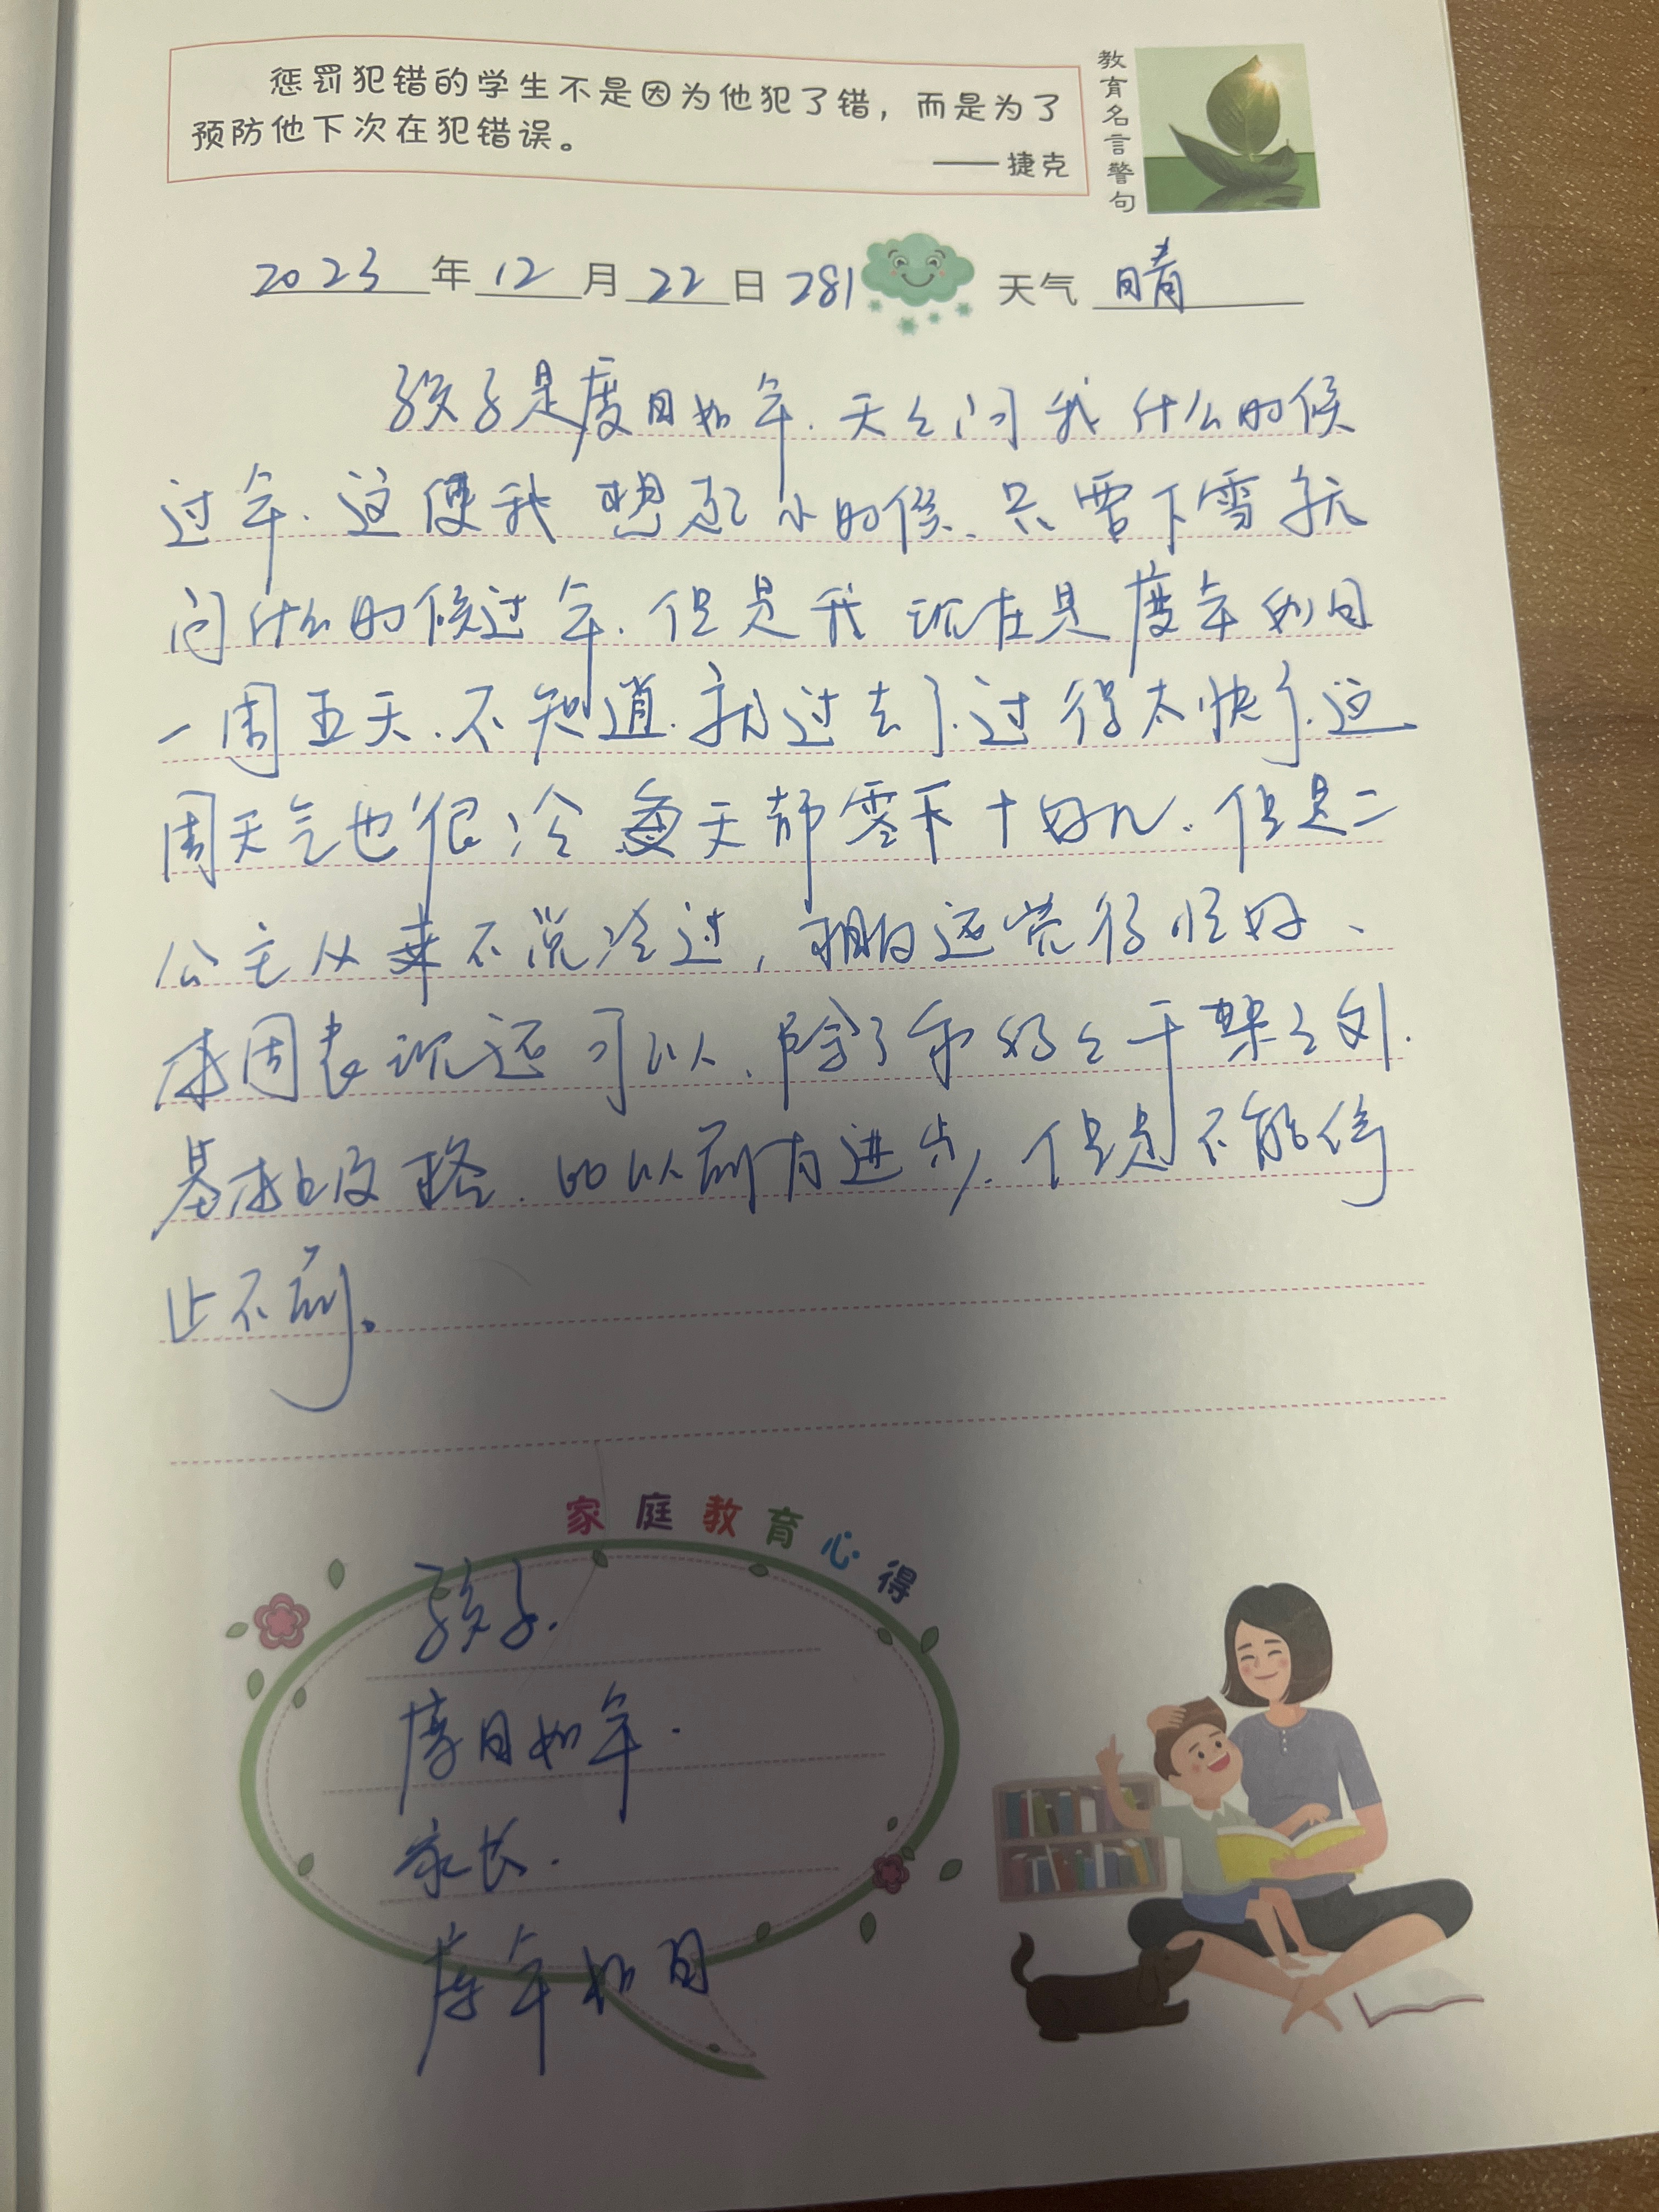 惩罚犯错的学生不是因为他犯了错，而是为了
预防他下次在犯错误。
——捷克
教育名言警句
2023年12月22日 281 天气 晴
孩子是度日如年.天天问我什么时候
过年.这便我想起小时候、只要下雪就
问什么时候过年.但是我现在是度年如日
一周五天.不知道.就过去了.过得太快了.这
周天气也很冷 每天都零下十好几.但是二
公主从来不说冷过，
本周表现还可以.除了和奶奶干架之外.
基本上没 .比以前有进步.但是不能停
止不前。
家庭教育心得
孩子.
度日如年.
家长.
度年如日